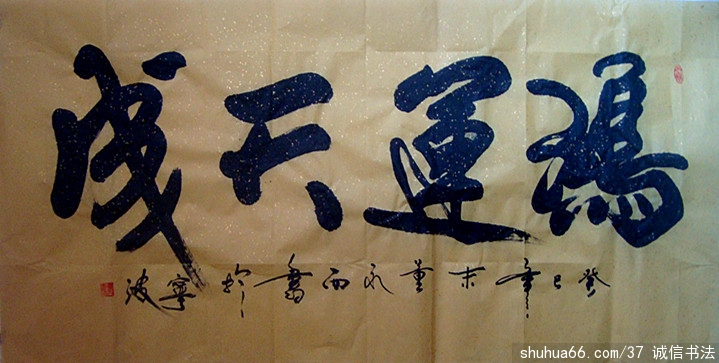 鴻運天成
癸巳年末董永書於寧波
shuhua66.com/37 诚信书法